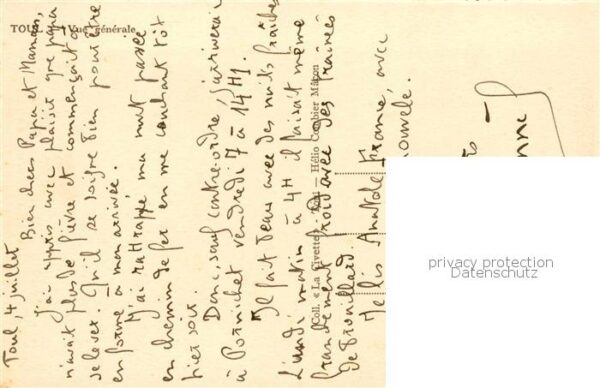 TOUL — Vue Générale
Toul, 4 juillet
Bien chers Papa et Maman,
J'ai appris avec plaisir que papa
n'avait plus de fièvre et commençait à
se lever. Qu'il se soigne bien pour être
en forme à mon arrivée.
J'ai rattrapé ma nuit passée
en chemin de fer en me couchant tôt
hier soir.
Donc, sauf contre-ordre, j'arriverai
à Pornichet vendredi 7 à 14H1.
Il fait beau avec des nuits fraîches
Lundi matin à 4H il faisait même
franchement froid avec des traînées
de brouillard.
Je lis Anatole France, avec
Coll. « La Civette » Toul — Hélio Combier Mâcon
privacy protection
Datenschutz